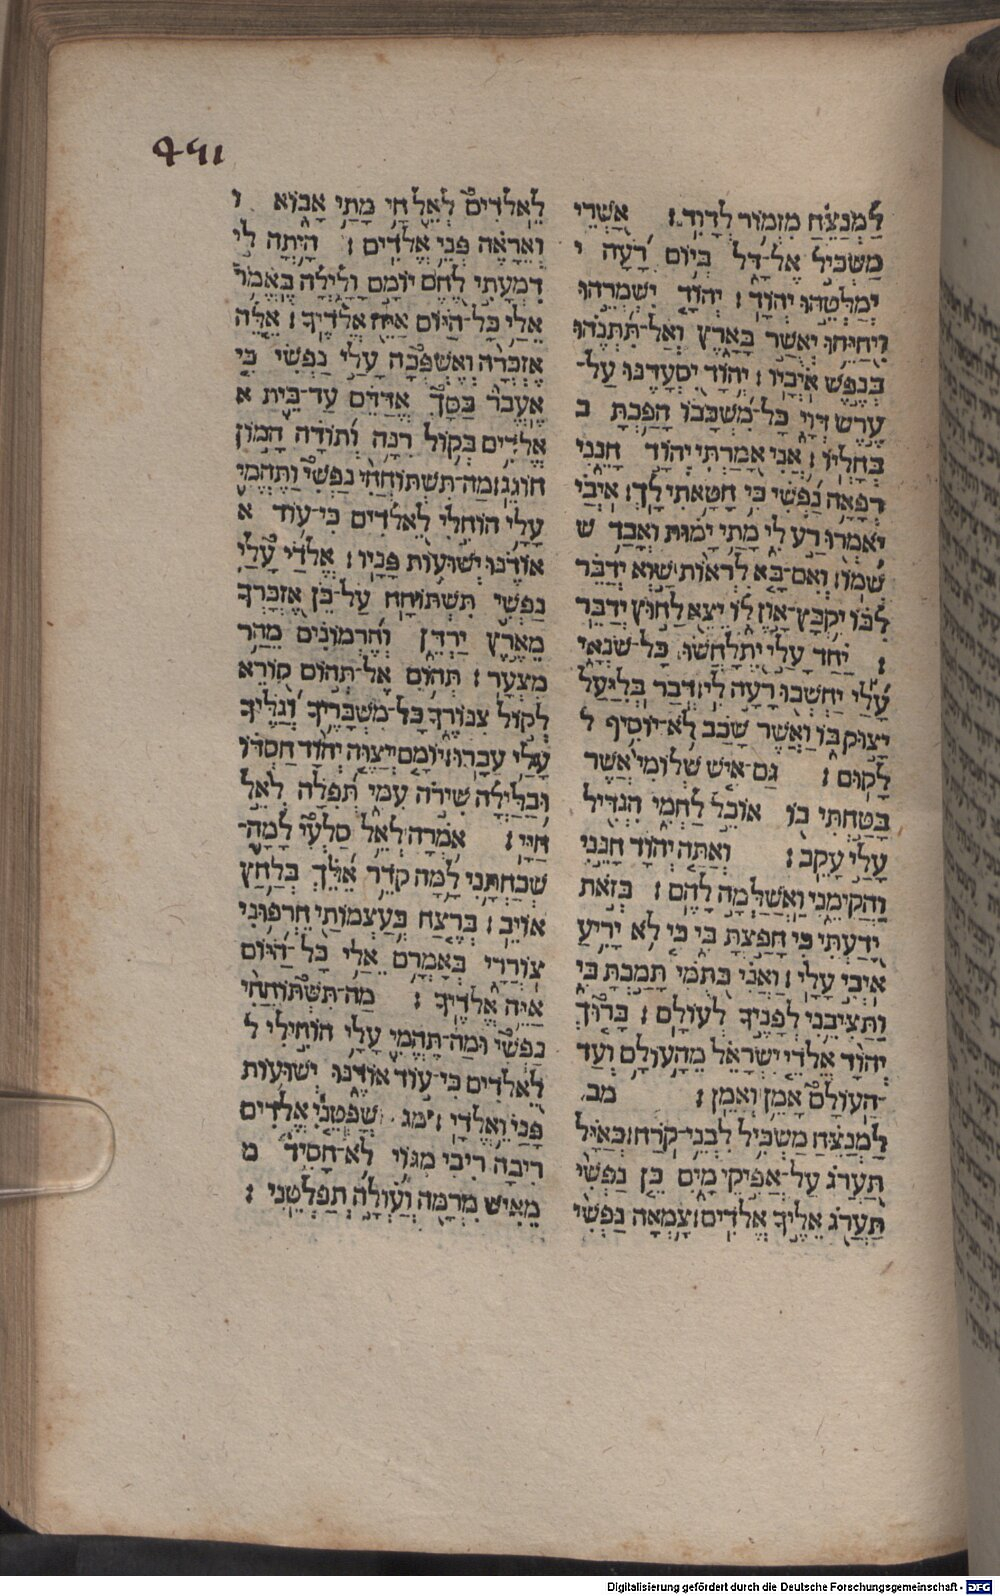 למנצח מזמור לדוד : אשרי
משכיל אל־דל ביום רעה י
ימלטהו יהוד : יהוד ישמרהו
ויחיהו יאשר בארץ ואל־תתנהו
בנפש איביו : יהוד יסעדנו על־
ערש דוי כל־משכבו הפכת ב
בחליו : אני אמרתי יהוד חנני
רפאה נפשי כי חטאתי לך: איבי
יאמרו רע לי מתי ימות ואבד ש
שמו : ואם־בא לראות שוא ידבר
לבו יקבץ־און לו יצא לחוץ ידבר
: יחד עלי יתלחשו כל־שנאי
עלי יחשבו רעה לי: דבר בליעל
יצוק בו ואשר שכב לא־יוסיף ל
לקום : גם־איש שלומי אשר
בטחתי בו אוכל לחמי הגדיל
עלי עקב : ואתה יהוד חנני
והקימני ואשלמה להם : בזאת
ידעתי כי חפצת בי כי לא יריע
איבי עלי : ואני בתמי תמכת בי
ותציבני לפניך לעולם : ברוך
יהוד אלדי ישראל מהעולם ועד
העולם אמן ואמן : מב
למנצח משכיל לבני־קרח: כאיל
תערג על־אפיקי מים כן נפשי
תערג אליך אלדים: צמאה נפשי
לאלדים לאל חי מתי אבוא ו
ואראה פני אלדים : היתה לי
דמעתי לחם יומם ולילה באמור
אלי כל־היום איה אלדיך : אלה
אזכרה ואשפכה עלי נפשי כי
אעבר בסך אדדם עד־בית א
אלדים בקול רנה ותודה המון
חוגג: מה־תשתוחחי נפשי ותהמי
עלי הוחלי לאלדים כי־עוד א
אודנו ישועות פניו : אלדי עלי
נפשי תשתוחח על־כן אזכרך
מארץ ירדן וחרמונים מהר
מצער : תהום אל־תהום קורא
לקול צנוריך כל־משבריך וגליך
עלי עברו: יומם יצוה יהוד חסדו
ובלילה שירה עמי תפלה לאל
חיי : אמרה לאל סלעי למה־
שכחתני למה קדר אלך בלחץ
אויב : ברצח בעצמותי חרפוני
צוררי באמרם אלי כל־היום
איה אלדיך : מה־תשתוחחי
נפשי ומה־תהמי עלי הוחילי ל
לאלדים כי־עוד אודנו ישועות
פני ואלדי : מג שפטני אלדים
וריבה ריבי מגוי לא־חסיד מ
מאיש מרמה ועולה תפלטני :
Digitalisierung gefördert durch die Deutsche Forschungsgemeinschaft - DFG